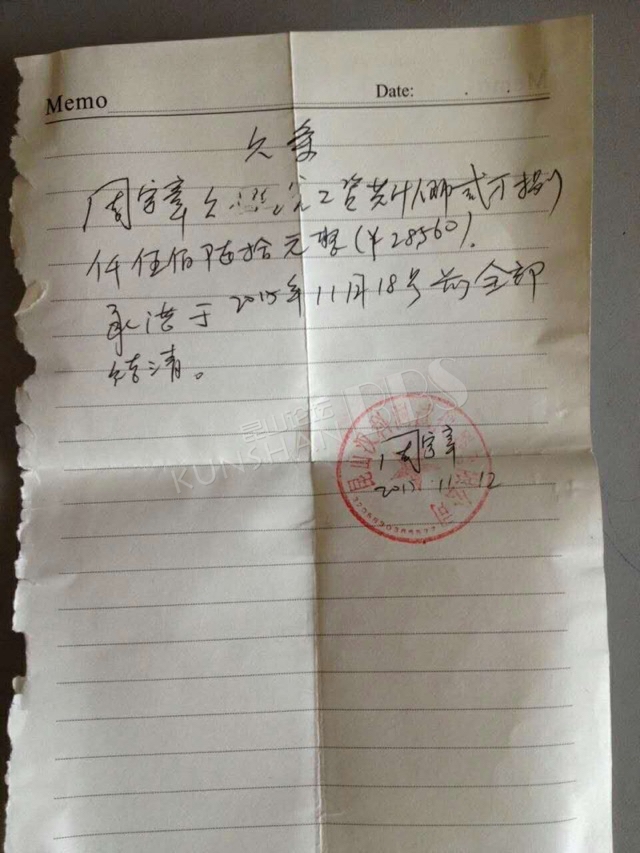 Memo Date: . .
欠条
周字章欠 工资共计人币贰万捌
仟伍佰陆拾元整(￥28560).
承诺于2015年11月18号前全部
结清。
周字章
2015.11.12
昆山 公司
昆山论坛 BBS
KUNSHAN